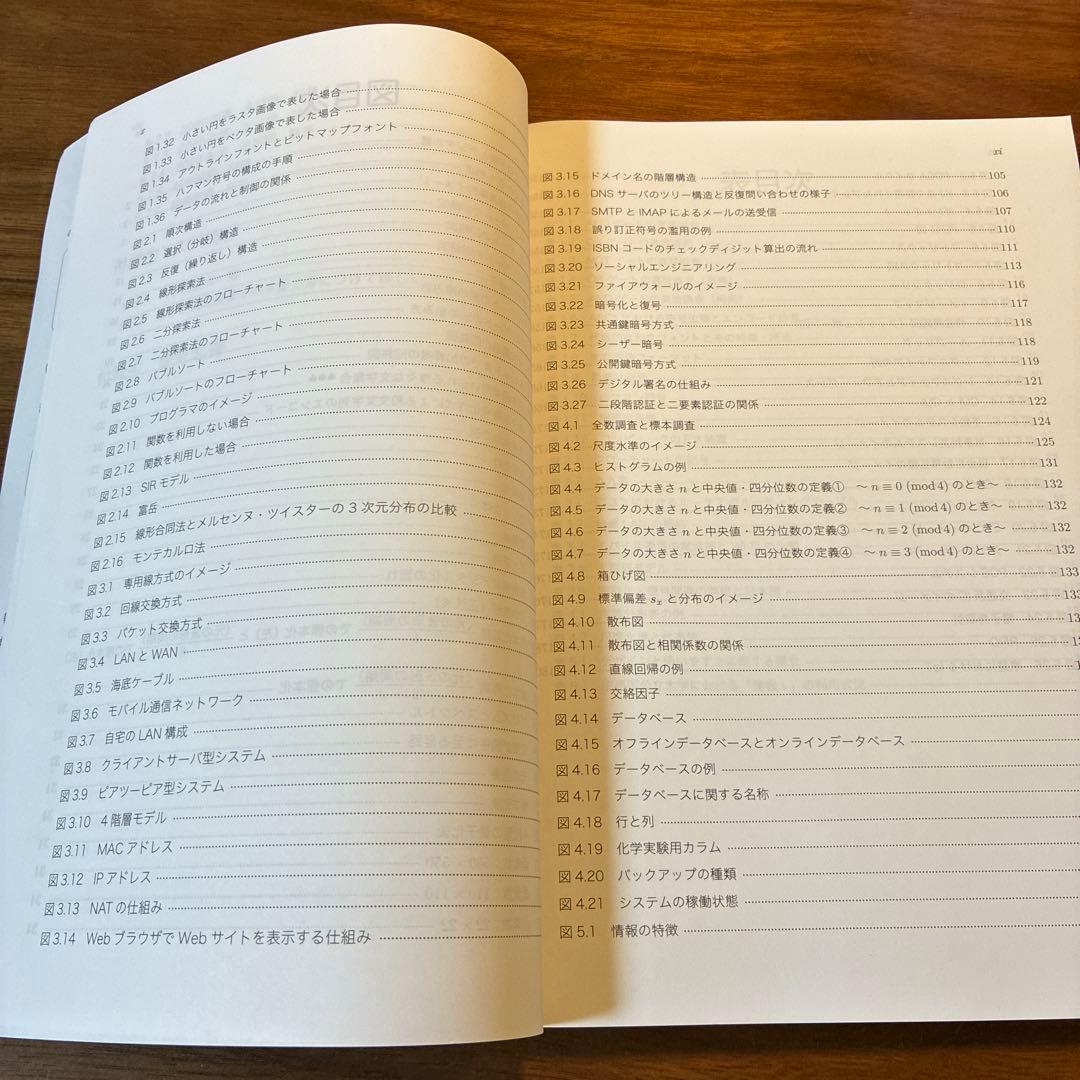 x
図 1.32 小さい円をラスタ画像で表した場合
図 1.33 小さい円をベクタ画像で表した場合
図 1.34 アウトラインフォントとビットマップフォント
図 1.35 ハフマン符号の構成の手順
図 1.36 データの流れと制御の関係
図 2.1 順次構造
図 2.2 選択（分岐）構造
図 2.3 反復（繰り返し）構造
図 2.4 線形探索法
図 2.5 線形探索法のフローチャート
図 2.6 二分探索法
図 2.7 二分探索法のフローチャート
図 2.8 バブルソート
図 2.9 バブルソートのフローチャート
図 2.10 プログラマのイメージ
図 2.11 関数を利用しない場合
図 2.12 関数を利用した場合
図 2.13 SIR モデル
図 2.14 富岳
図 2.15 線形合同法とメルセンヌ・ツイスターの 3 次元分布の比較
図 2.16 モンテカルロ法
図 3.1 専用線方式のイメージ
図 3.2 回線交換方式
図 3.3 パケット交換方式
図 3.4 LAN と WAN
図 3.5 海底ケーブル
図 3.6 モバイル通信ネットワーク
図 3.7 自宅の LAN 構成
図 3.8 クライアントサーバ型システム
図 3.9 ピアツーピア型システム
図 3.10 4 階層モデル
図 3.11 MAC アドレス
図 3.12 IP アドレス
図 3.13 NAT の仕組み
図 3.14 Web ブラウザで Web サイトを表示する仕組み
xi
図 3.15 ドメイン名の階層構造 105
図 3.16 DNS サーバのツリー構造と反復問い合わせの様子 106
図 3.17 SMTP と IMAP によるメールの送受信 107
図 3.18 誤り訂正符号の濫用の例 110
図 3.19 ISBN コードのチェックディジット算出の流れ 111
図 3.20 ソーシャルエンジニアリング 113
図 3.21 ファイアウォールのイメージ 116
図 3.22 暗号化と復号 117
図 3.23 共通鍵暗号方式 118
図 3.24 シーザー暗号 118
図 3.25 公開鍵暗号方式 119
図 3.26 デジタル署名の仕組み 121
図 3.27 二段階認証と二要素認証の関係 122
図 4.1 全数調査と標本調査 124
図 4.2 尺度水準のイメージ 125
図 4.3 ヒストグラムの例 131
図 4.4 データの大きさ n と中央値・四分位数の定義① ～ n ≡ 0 (mod 4) のとき～ 132
図 4.5 データの大きさ n と中央値・四分位数の定義② ～ n ≡ 1 (mod 4) のとき～ 132
図 4.6 データの大きさ n と中央値・四分位数の定義③ ～ n ≡ 2 (mod 4) のとき～ 132
図 4.7 データの大きさ n と中央値・四分位数の定義④ ～ n ≡ 3 (mod 4) のとき～ 132
図 4.8 箱ひげ図 133
図 4.9 標準偏差 sx と分布のイメージ 133
図 4.10 散布図
図 4.11 散布図と相関係数の関係
図 4.12 直線回帰の例
図 4.13 交絡因子
図 4.14 データベース
図 4.15 オフラインデータベースとオンラインデータベース
図 4.16 データベースの例
図 4.17 データベースに関する名称
図 4.18 行と列
図 4.19 化学実験用カラム
図 4.20 バックアップの種類
図 4.21 システムの稼働状態
図 5.1 情報の特徴